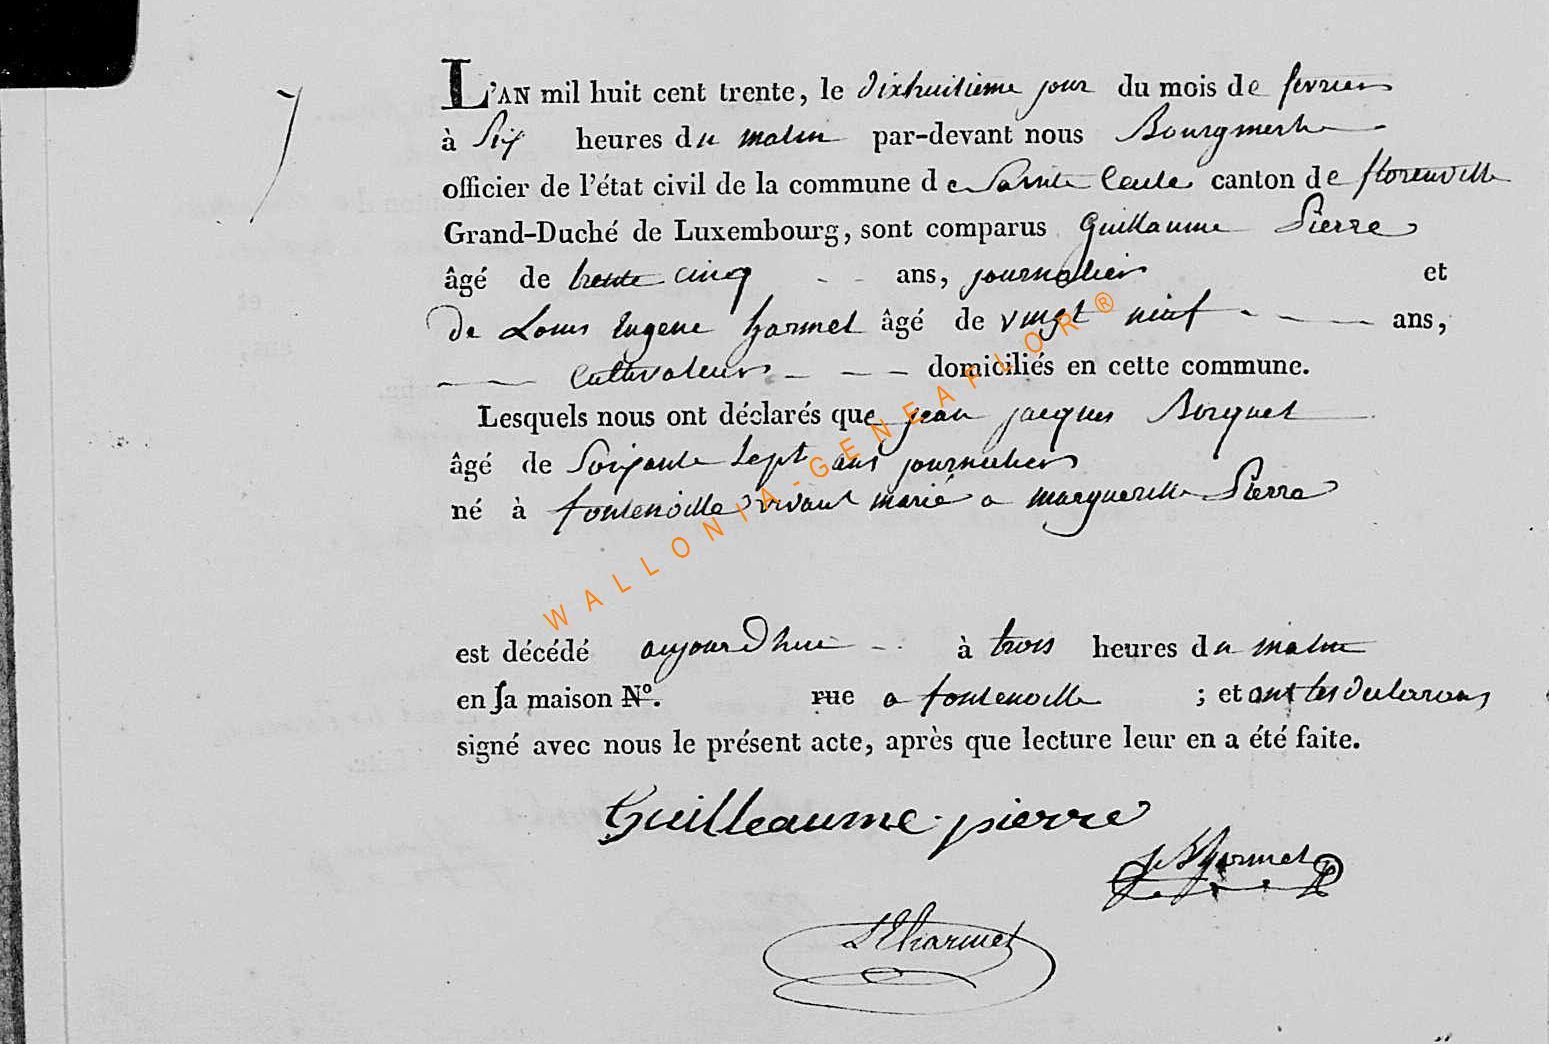 7
L'AN mil huit cent trente, le dixhuitieme jour du mois de fevrier
à Six heures du matin par-devant nous Bourgmestre
officier de l'état civil de la commune de Sainte Cecile canton de florenville
Grand-Duché de Luxembourg, sont comparus Guillaume Pierre
âgé de trente cinq ans, journalier et
de Louis Eugene harmel âgé de vingt neuf ans,
Cultivateur domiciliés en cette commune.
Lesquels nous ont déclarés que jean jacques Borquet
âgé de Soixante Sept ans journalier
né à fontenoille vivant marié a margueritte Pierre
est décédé aujourdhui à trois heures du matin
en Sa maison N°. rue a fontenoille ; et ont les declarans
signé avec nous le présent acte, après que lecture leur en a été faite.
Guilleaume pierre
harmel
LEharmel
WALLONIA-GENEAFLOR®